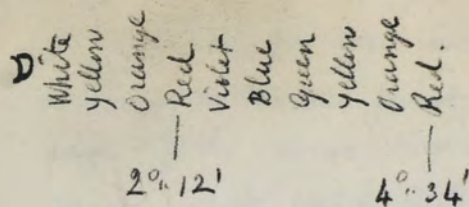 White
yellow
Orange
Red
Violet
Blue
Green
Yellow
Orange
Red.
2°.. 12'
4°.. 34'